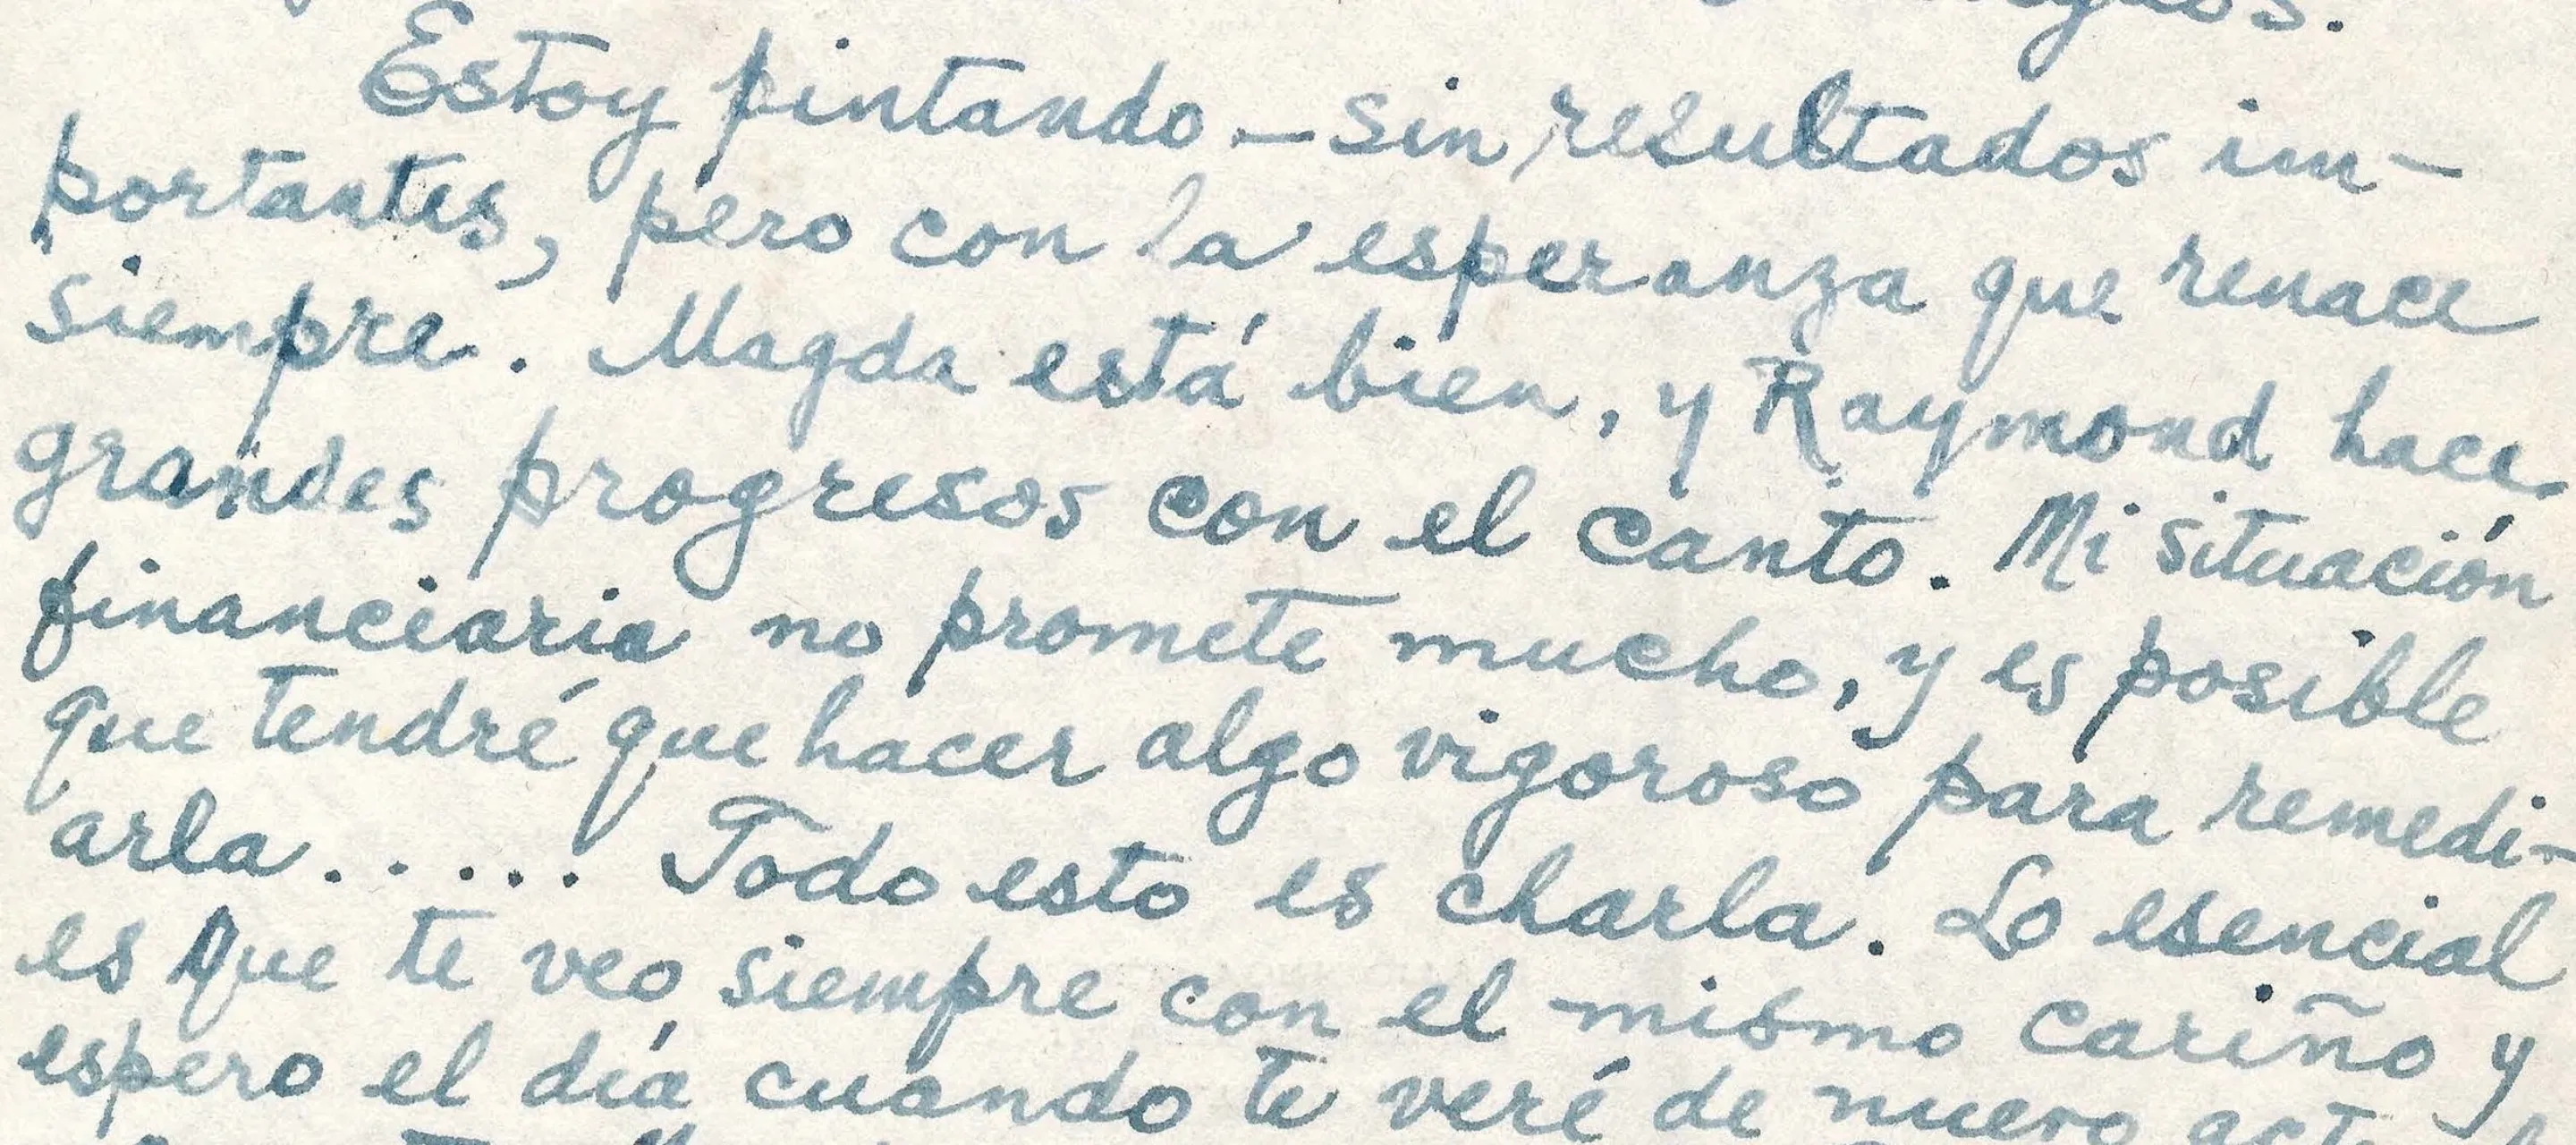 Estoy pintando – sin resultados im-
portantes, pero con la esperanza que renace
siempre. Magda está bien, y Raymond hace
grandes progresos con el canto. Mi situación
financiaria no promete mucho, y es posible
que tendré que hacer algo vigoroso para remedi-
arla..... Todo esto es charla. Lo esencial
es que te veo siempre con el mismo cariño y
espero el día cuando te veré de nuevo